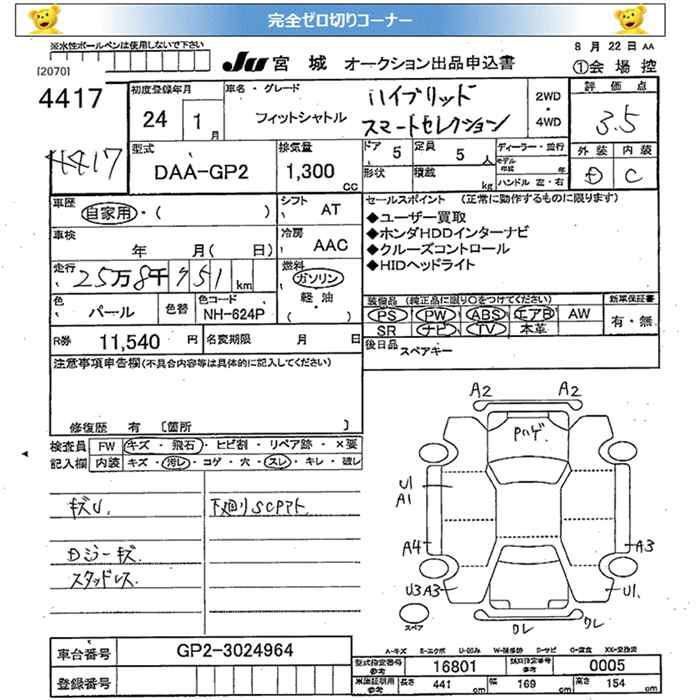 完全ゼロ切りコーナー
※水性ボールペンは使用しないで下さい
[2070]
JU 宮城 オークション出品申込書
8 月 22 日 AA
①会場控
4417
4417
初度登録年月
24 1 月
車名・グレード
フィットシャトル
ハイブリッド
スマートセレクション
2WD
・
4WD
評価点
3.5
外装 内装
D C
型式
DAA-GP2
排気量
1,300 cc
ドア 5
定員 5 人
形状
積載 kg
ディーラー・並行
モデル年式 年
ハンドル 左・右
車歴
自家用・( )
シフト AT
セールスポイント (正常に動作するものに限ります)
◆ユーザー買取
◆ホンダHDDインターナビ
◆クルーズコントロール
◆HIDヘッドライト
車検 年 月(日)
冷房 AAC
走行
25万8千951 km
燃料
ガソリン
軽・油
( )
色 パール
色替
色コード
NH-624P
装備品 (純正品に限り○をつけてください)
新車保証書
PS PW ABS エアB AW
SR ナビ TV 本革
有・無
R券 11,540 円
名変期限 月 日
後日品 スペアキー
注意事項申告欄(不具合内容等は具体的に記入してください)
修復歴 有 [箇所 ]
検査員
記入欄
FW キズ・飛石・ヒビ割・リペア跡・×要
内装 キズ・汚レ・コゲ・穴・スレ・キレ・破レ
キズU.
下廻りSCPアト
Dジーキズ.
スタッドレス
A2 A2
Pハゲ.
U1
A1
A4 A3
U3A3 U1.
ワレ ワレ
スペア
A-キズ E-エクボ U-凹み W-補修跡 S-サビ C-腐食 XX-交換済
車台番号 GP2-3024964
登録番号
型式指定番号
参考
16801
類別指定番号
参考
0005
車検証明用
参考
長さ 441 cm 幅 169 cm 高さ 154 cm